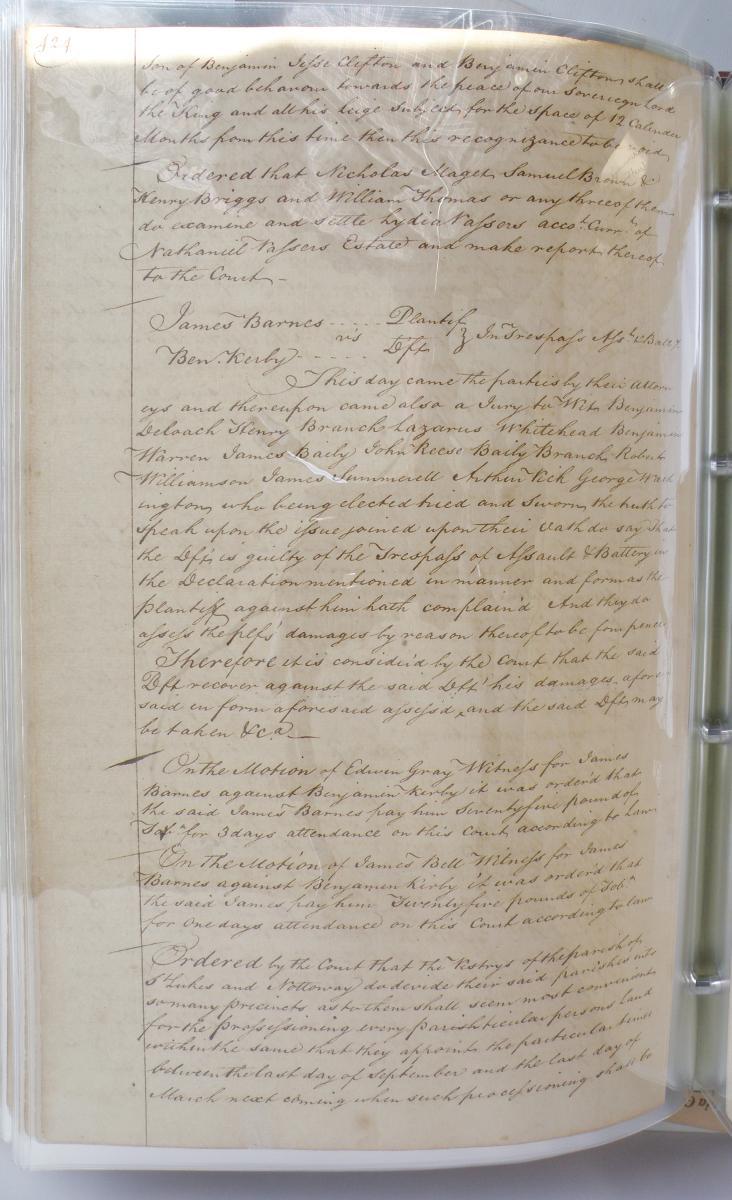 424
Son of Benjamin Jesse Clifton and Benjamin Clifton shall
be of good behavour towards the peace of our Sovereign Lord
the King and all his leige Subjects for the Space of 12 Calender
Months from this time then this recognizance to be void
Ordered that Nicholas Maget, Samuel Brown &
Henry Briggs and William Thomas or any three of them
do examine and settle Lydia Vassers accot. Currt. of
Nathaniel Vassers Estate and make report thereof
to the Court –
James Barnes ..... Plantif
vs } In Trespass Asst. & Batty
Ben. Kerby ..... Dft
This day came the parties by their attorn
eys and thereupon came also a Jury to Wit, Benjamin
Deloach Henry Branch Lazarus Whitehead Benjamin
Warren James Baily John Reese Baily Branch, Robert
Williamson James Summerell Arthur Rich George Wash
ington, who being elected tried and Sworn the truth to
Speak upon the issue joined upon their Oath do say that
the Dft, is guilty of the Trespass of Assault & Battery in
the Declaration mentioned in manner and form as the
plantiff against him hath complain'd And they do
assess the plfs' damages by reason thereof to be four pence
Therefore it is consider'd by the Court that the said
Dft recover against the said Dft his damages afore
said in form aforesaid assess'd, and the said Dft, may
be taken &c.a —
On the Motion of Edwin Gray Witness for James
Barnes against Benjamin Kirby it was order'd that
the said James Barnes pay him Seventyfive pound of
Tobo. for 3 days attendance on this Court, according to Law
On the Motion of James Bell Witness for James
Barnes against Benjamen Kirby it was order'd that
the said James pay him Twentyfive pounds of Tobo.
for One days attendance on this Court according to law
Ordered by the Court that the Vestrys of the parish of
St Lukes and Nottoway do devide their said parishes into
so many precincts as to them shall seem most convenient
for the professioning every parishticular persons Land
within the same that they appoint the particular times
between the last day of September and the last day of
March next coming when such processioning shall be